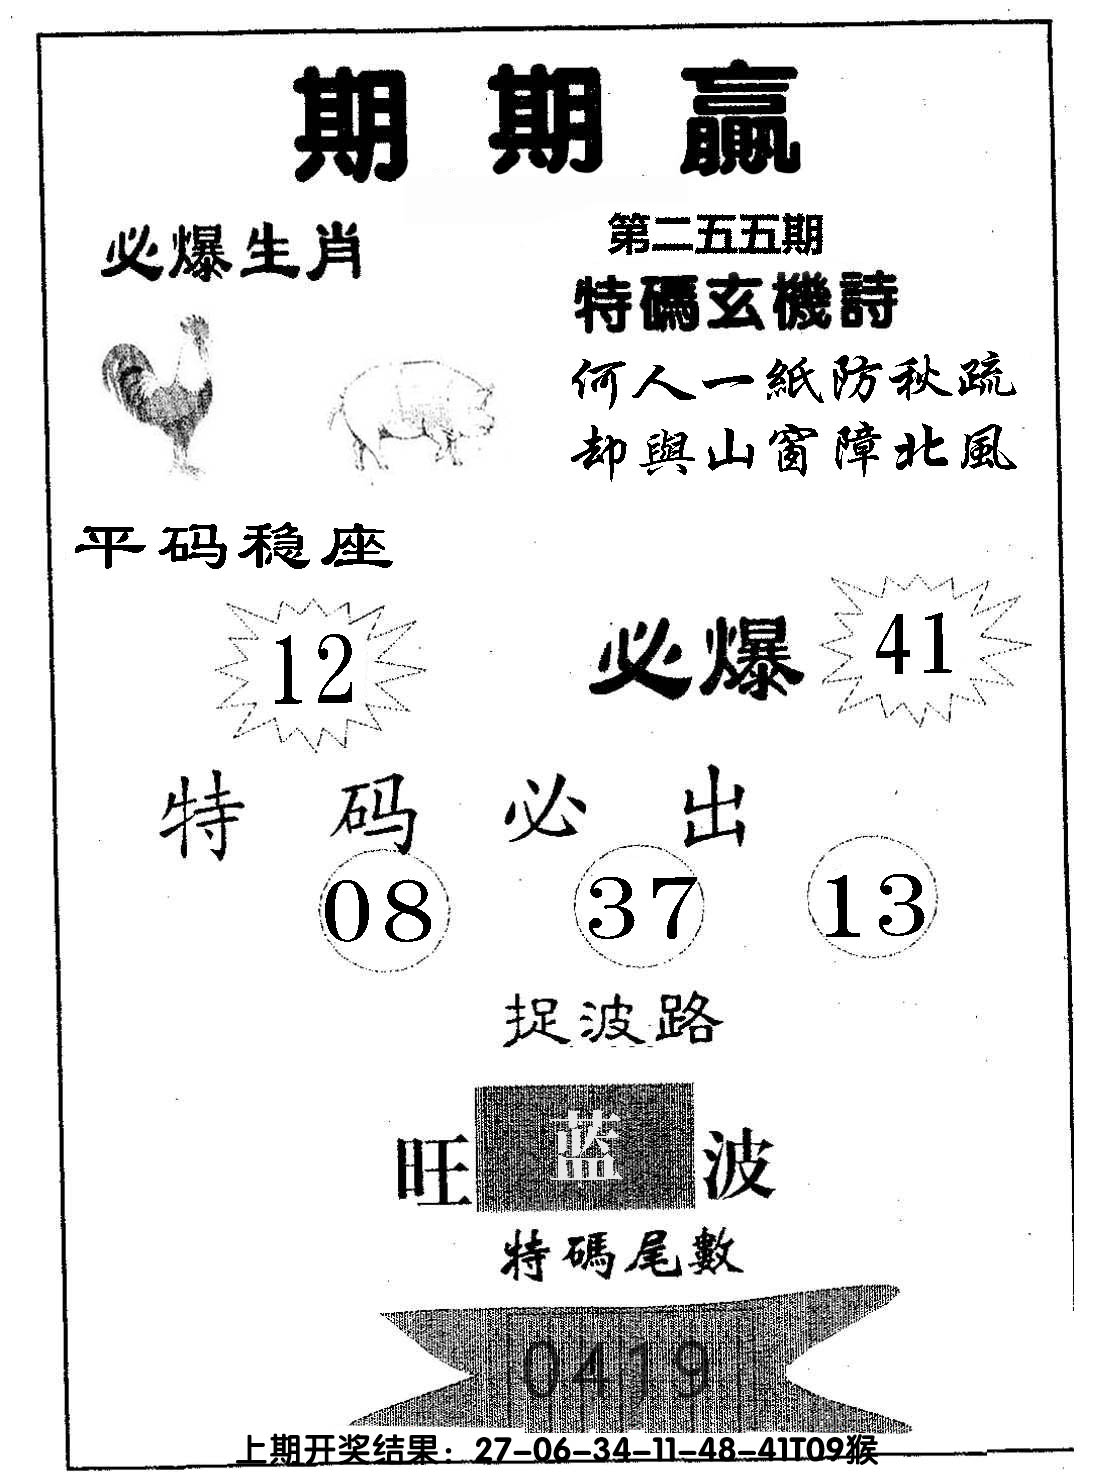 期期赢
必爆生肖
第二五五期
特碼玄機詩
何人一紙防秋疏
却與山窗障北風
平码稳座
12
必爆
41
特码必出
08 37 13
捉波路
旺蓝波
特碼尾數
0419
上期开奖结果：27-06-34-11-48-41T09猴